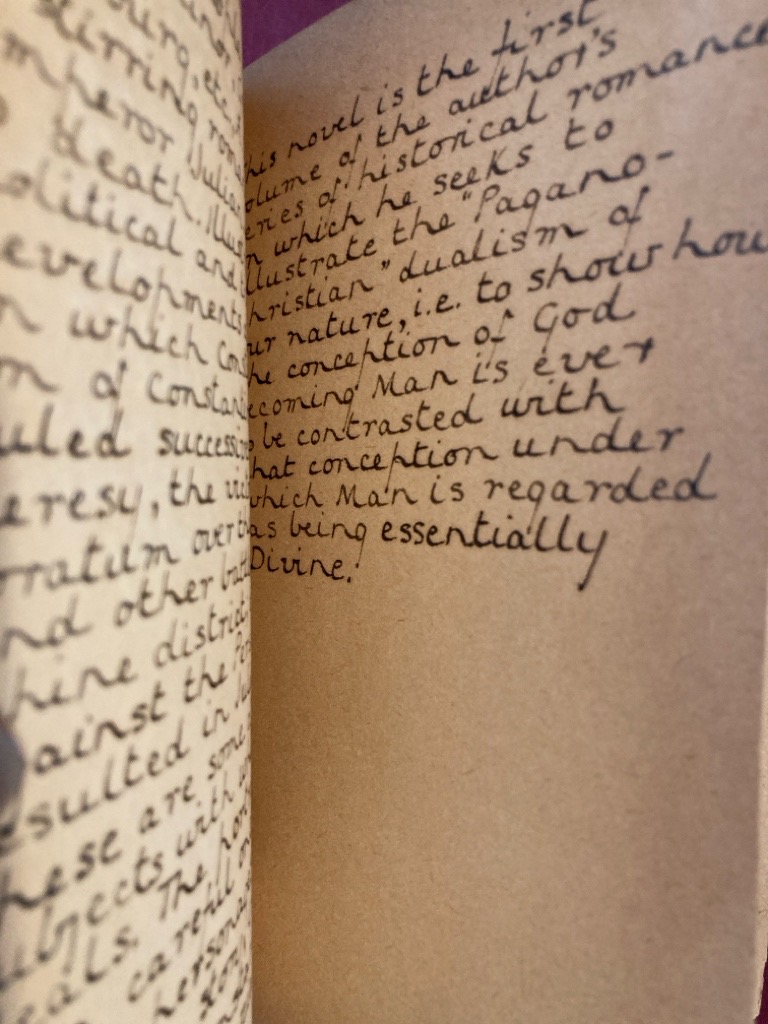 ourg, etc.
stirring rom
mperor Julia
death. Illus
olitical and
evelopments
n which Con
m of Constan
uled successi
eresy, the vic
rratum over
nd other bat
hine district
ainst the Per
esulted in Ju
hese are some
ubjects with
eals. The
persona
his novel is the first
olume of the author's
eries of historical romance
n which he seeks to
llustrate the "Pagano-
hristian" dualism of
ur nature, i.e. to show how
he conception of God
ecoming Man is ever
o be contrasted with
hat conception under
which Man is regarded
as being essentially
Divine.